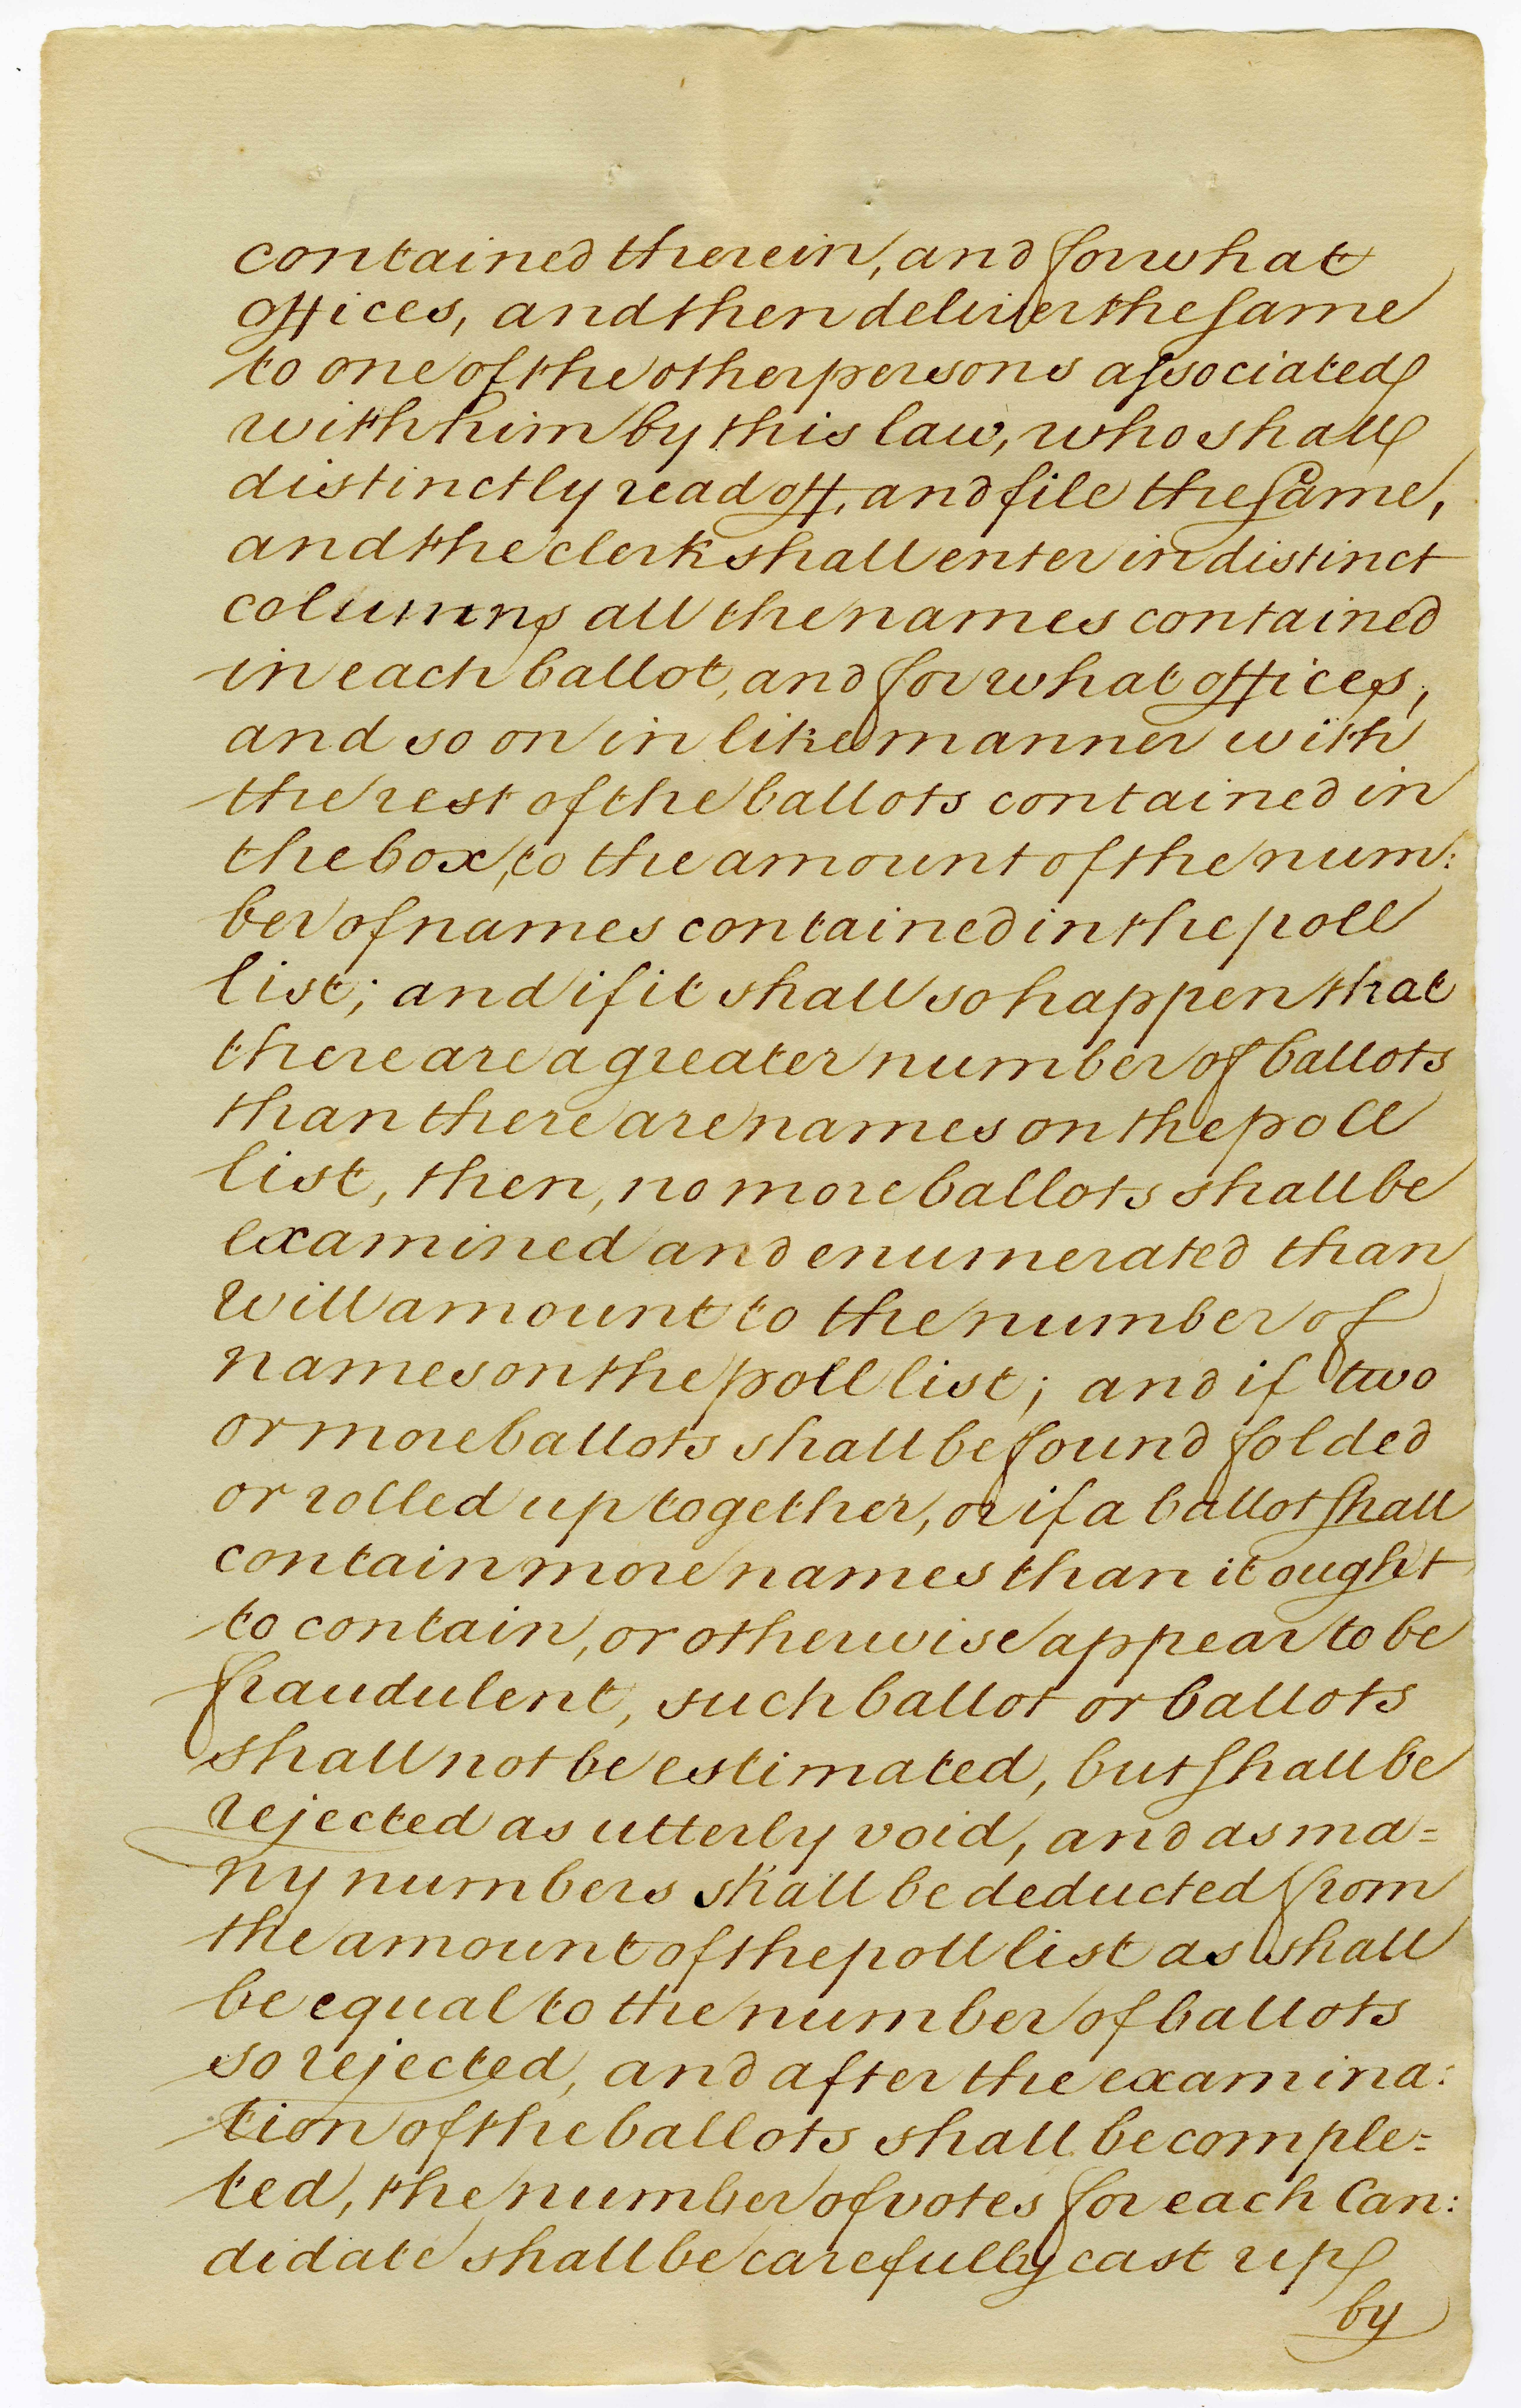 contained therein, and for what
offices, and then deliver the same
to one of the other persons associated
with him by this law, who shall
distinctly read off, and file the same,
and the clerk shall enter in distinct
columns all the names contained
in each ballot, and for what offices,
and so on in like manner with
the rest of the ballots contained in
the box, to the amount of the num:
ber of names contained in the poll
list; and if it shall so happen that
there are a greater number of ballots
than there are names on the poll
list, then, no more ballots shall be
examined and enumerated than
will amount to the number of
names on the poll list; and if two
or more ballots shall be found folded
or rolled up together, or if a ballot shall
contain more names than it ought
to contain, or otherwise appear to be
fraudulent, such ballot or ballots
shall not be estimated, but shall be
rejected as utterly void, and as ma=
ny numbers shall be deducted from
the amount of the poll list as shall
be equal to the number of ballots
so rejected, and after the examina:
tion of the ballots shall be comple=
ted, the number of votes for each Can:
didate shall be carefully cast up
by